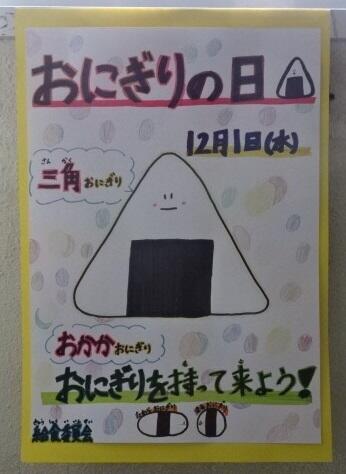 おにぎりの日
12月1日(水)
さんかく
三角おにぎり
おかかおにぎり
おにぎりを持って来よう!
給食委員会